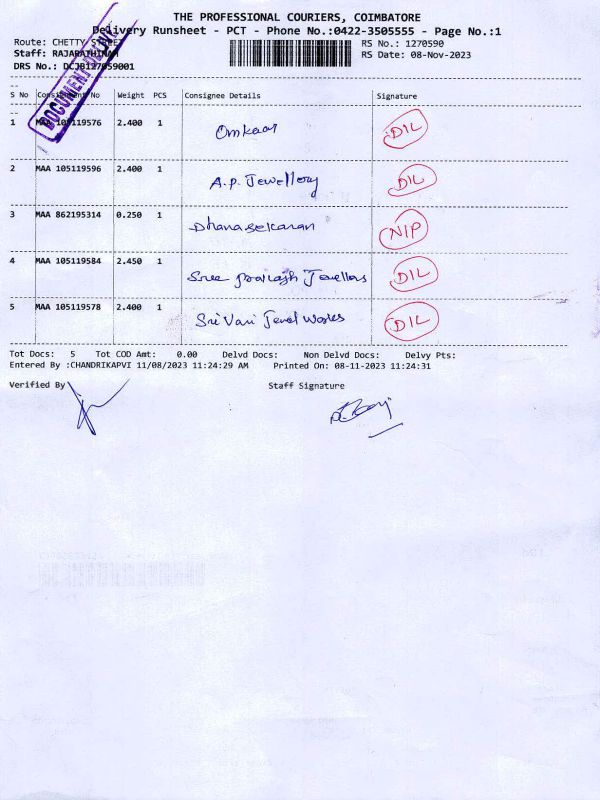 THE PROFESSIONAL COURIERS, COIMBATORE
Delivery Runsheet - PCT - Phone No.:0422-3505555 - Page No.:1
Route: CHETTY STREET
RS No.: 1270590
Staff: RAJARATHINAM
RS Date: 08-Nov-2023
DRS No.: DCJ8127059001
DOCUMENT
S No Consignment No Weight PCS Consignee Details Signature
1 MAA 105119576 2.400 1 Omkaar DIL
2 MAA 105119596 2.400 1 A.P. Jewellery DIL
3 MAA 862195314 0.250 1 Dhanasekaran NIP
4 MAA 105119584 2.450 1 Sree prakash Jewellers DIL
5 MAA 105119578 2.400 1 Sri Vari Jewel Works DIL
Tot Docs: 5 Tot COD Amt: 0.00 Delvd Docs: Non Delvd Docs: Delvy Pts:
Entered By :CHANDRIKAPVI 11/08/2023 11:24:29 AM Printed On: 08-11-2023 11:24:31
Verified By Staff Signature